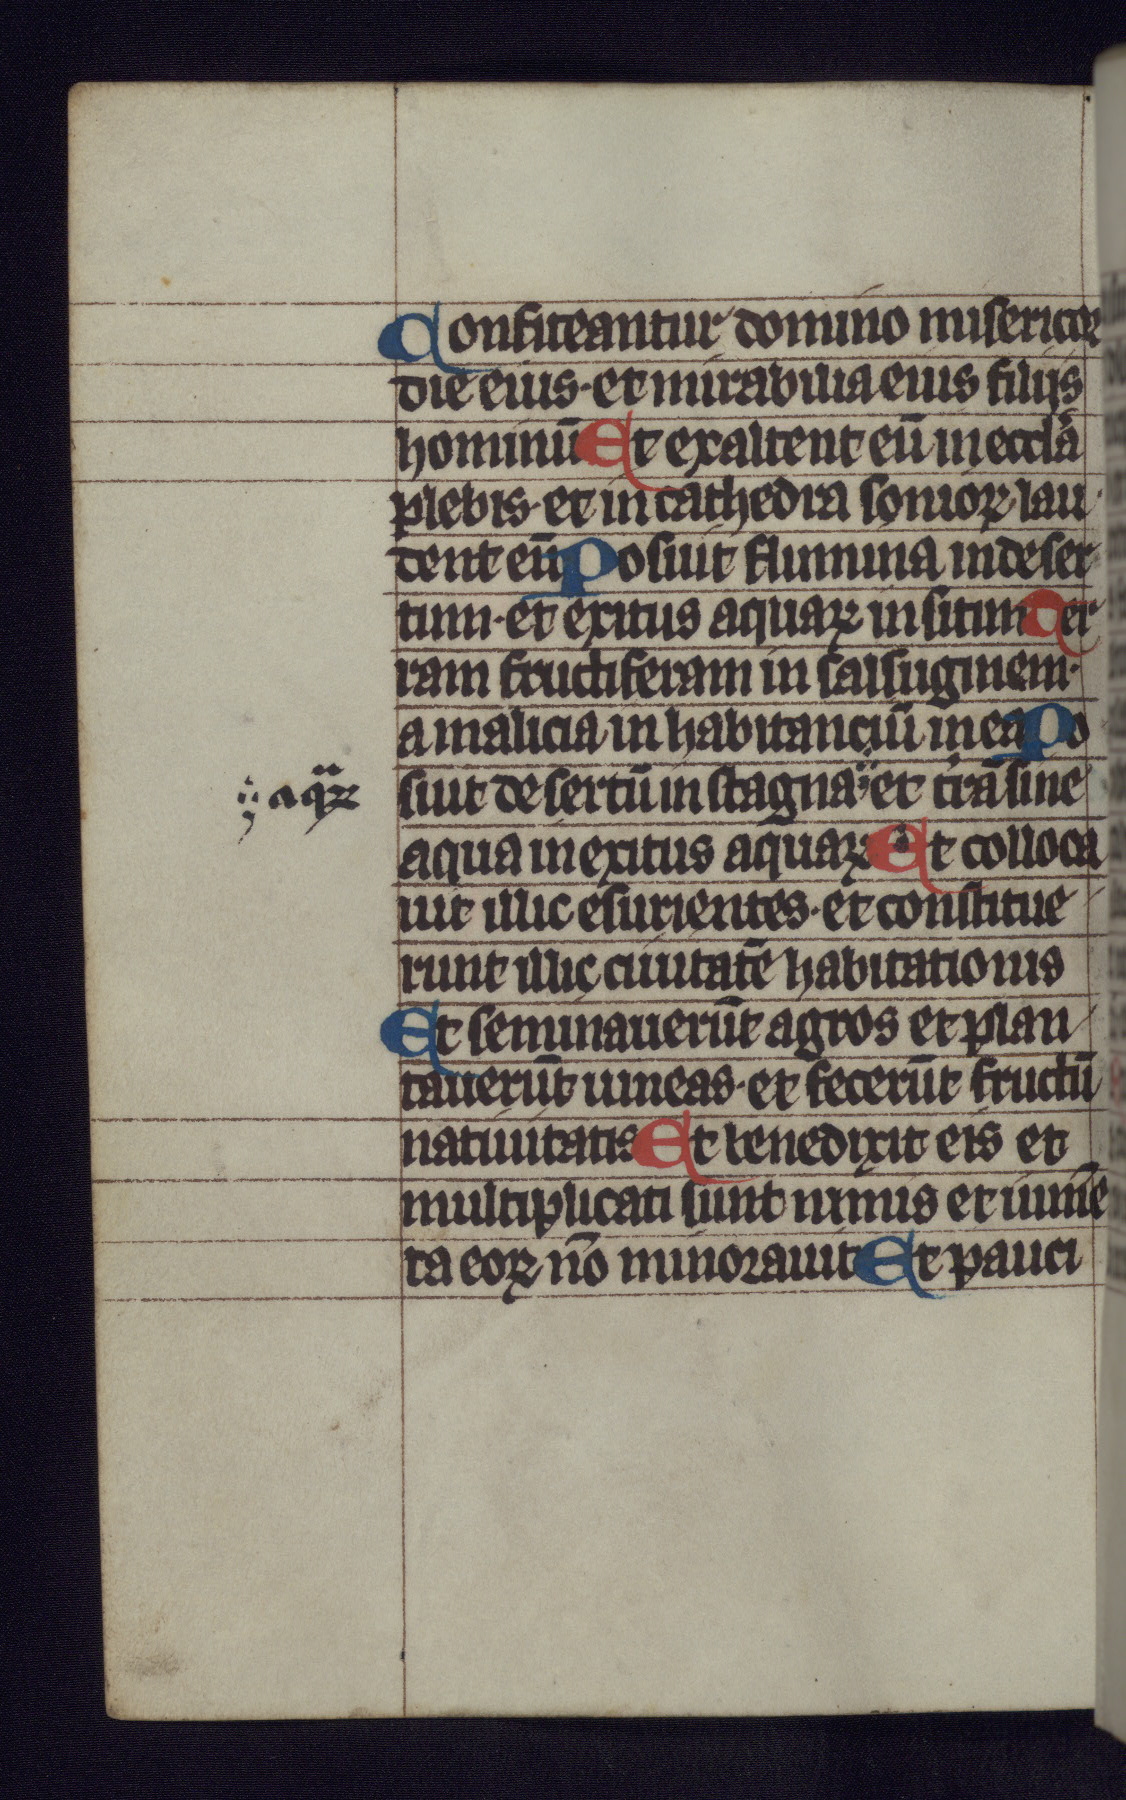 Confiteantur domino misericor
die eius· et mirabilia eius filijs
hominū Et exaltent eū in ecclā
plebis· et in cathedra senioꝝ lau
dent eū Posuit flumina in deser
tum· et exitus aquaꝝ in sitim Ter
ram fructiferam in salsuginem·
a malicia in habitanciū in ea Po
suit desertū in stagna et trā sine
aquaꝝ
aqua in exitus aquaꝝ Et colloca
uit illic esurientes· et constitue
runt illic ciuitatē habitationis
Et seminauerūt agros et plan
tauerūt uineas· et fecerūt fructū
natiuitatis Et benedixit eis et
multiplicati sunt nimis et iumē
ta eoꝝ nō minorauit Et pauci